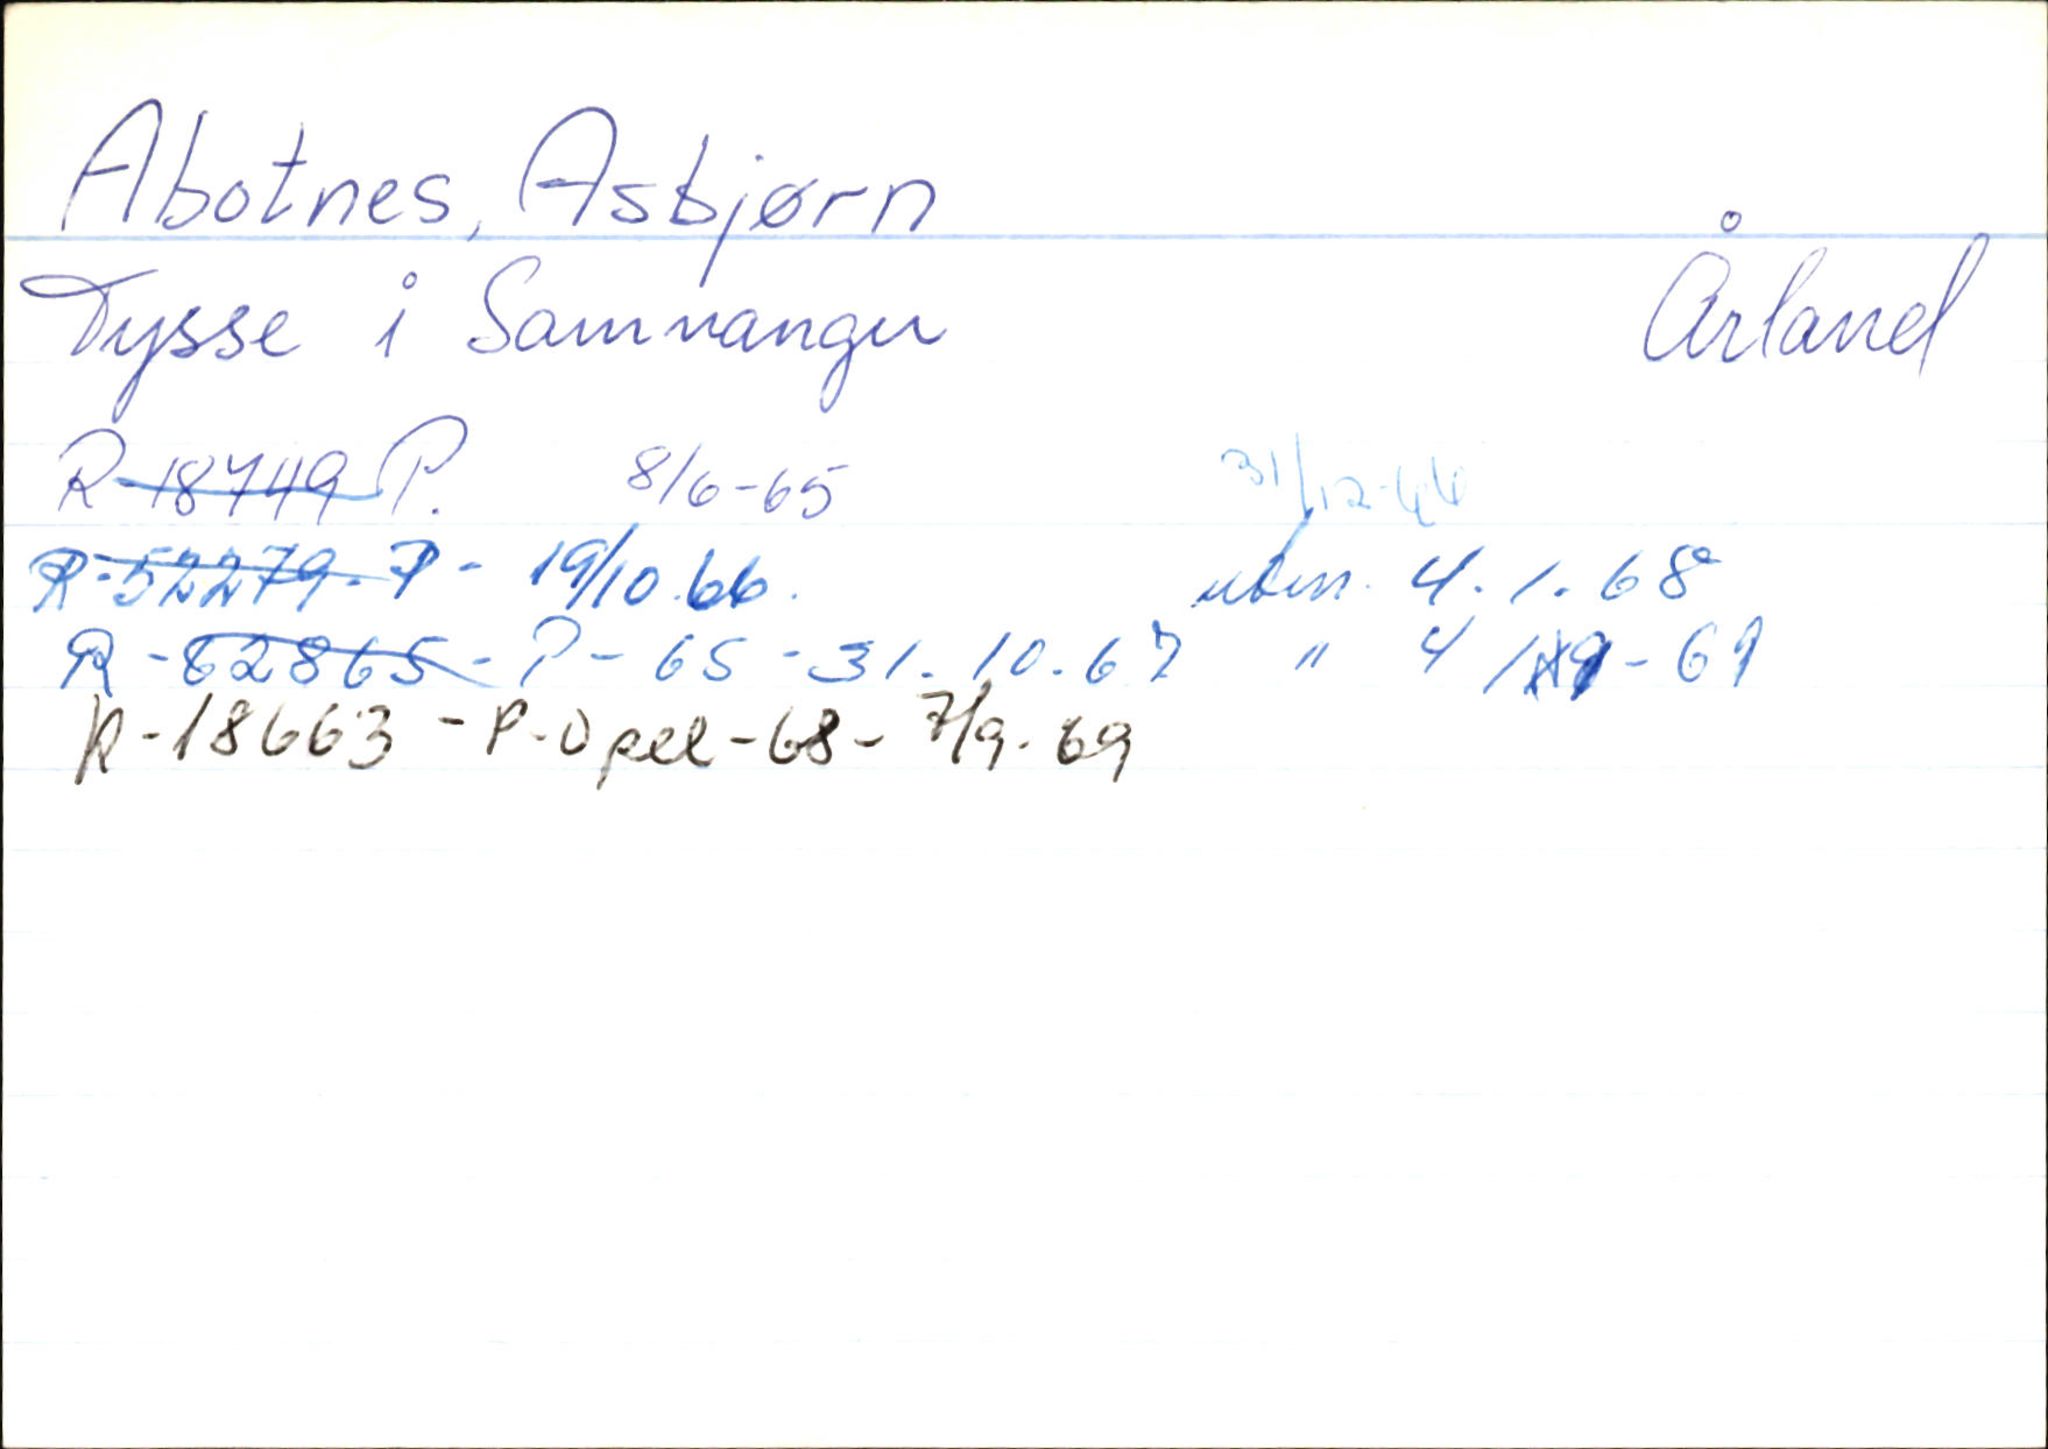 Abotnes, Asbjørn
Tysse i Samnanger Årland
R-18749 P. 8/6-65 31/12-66
R-52279. P - 19/10.66. utm. 4.1.68
R-62865 - P - 65 - 31.10.67 " 4/9-69
R-18663 - P-Opel-68- 7/9.69